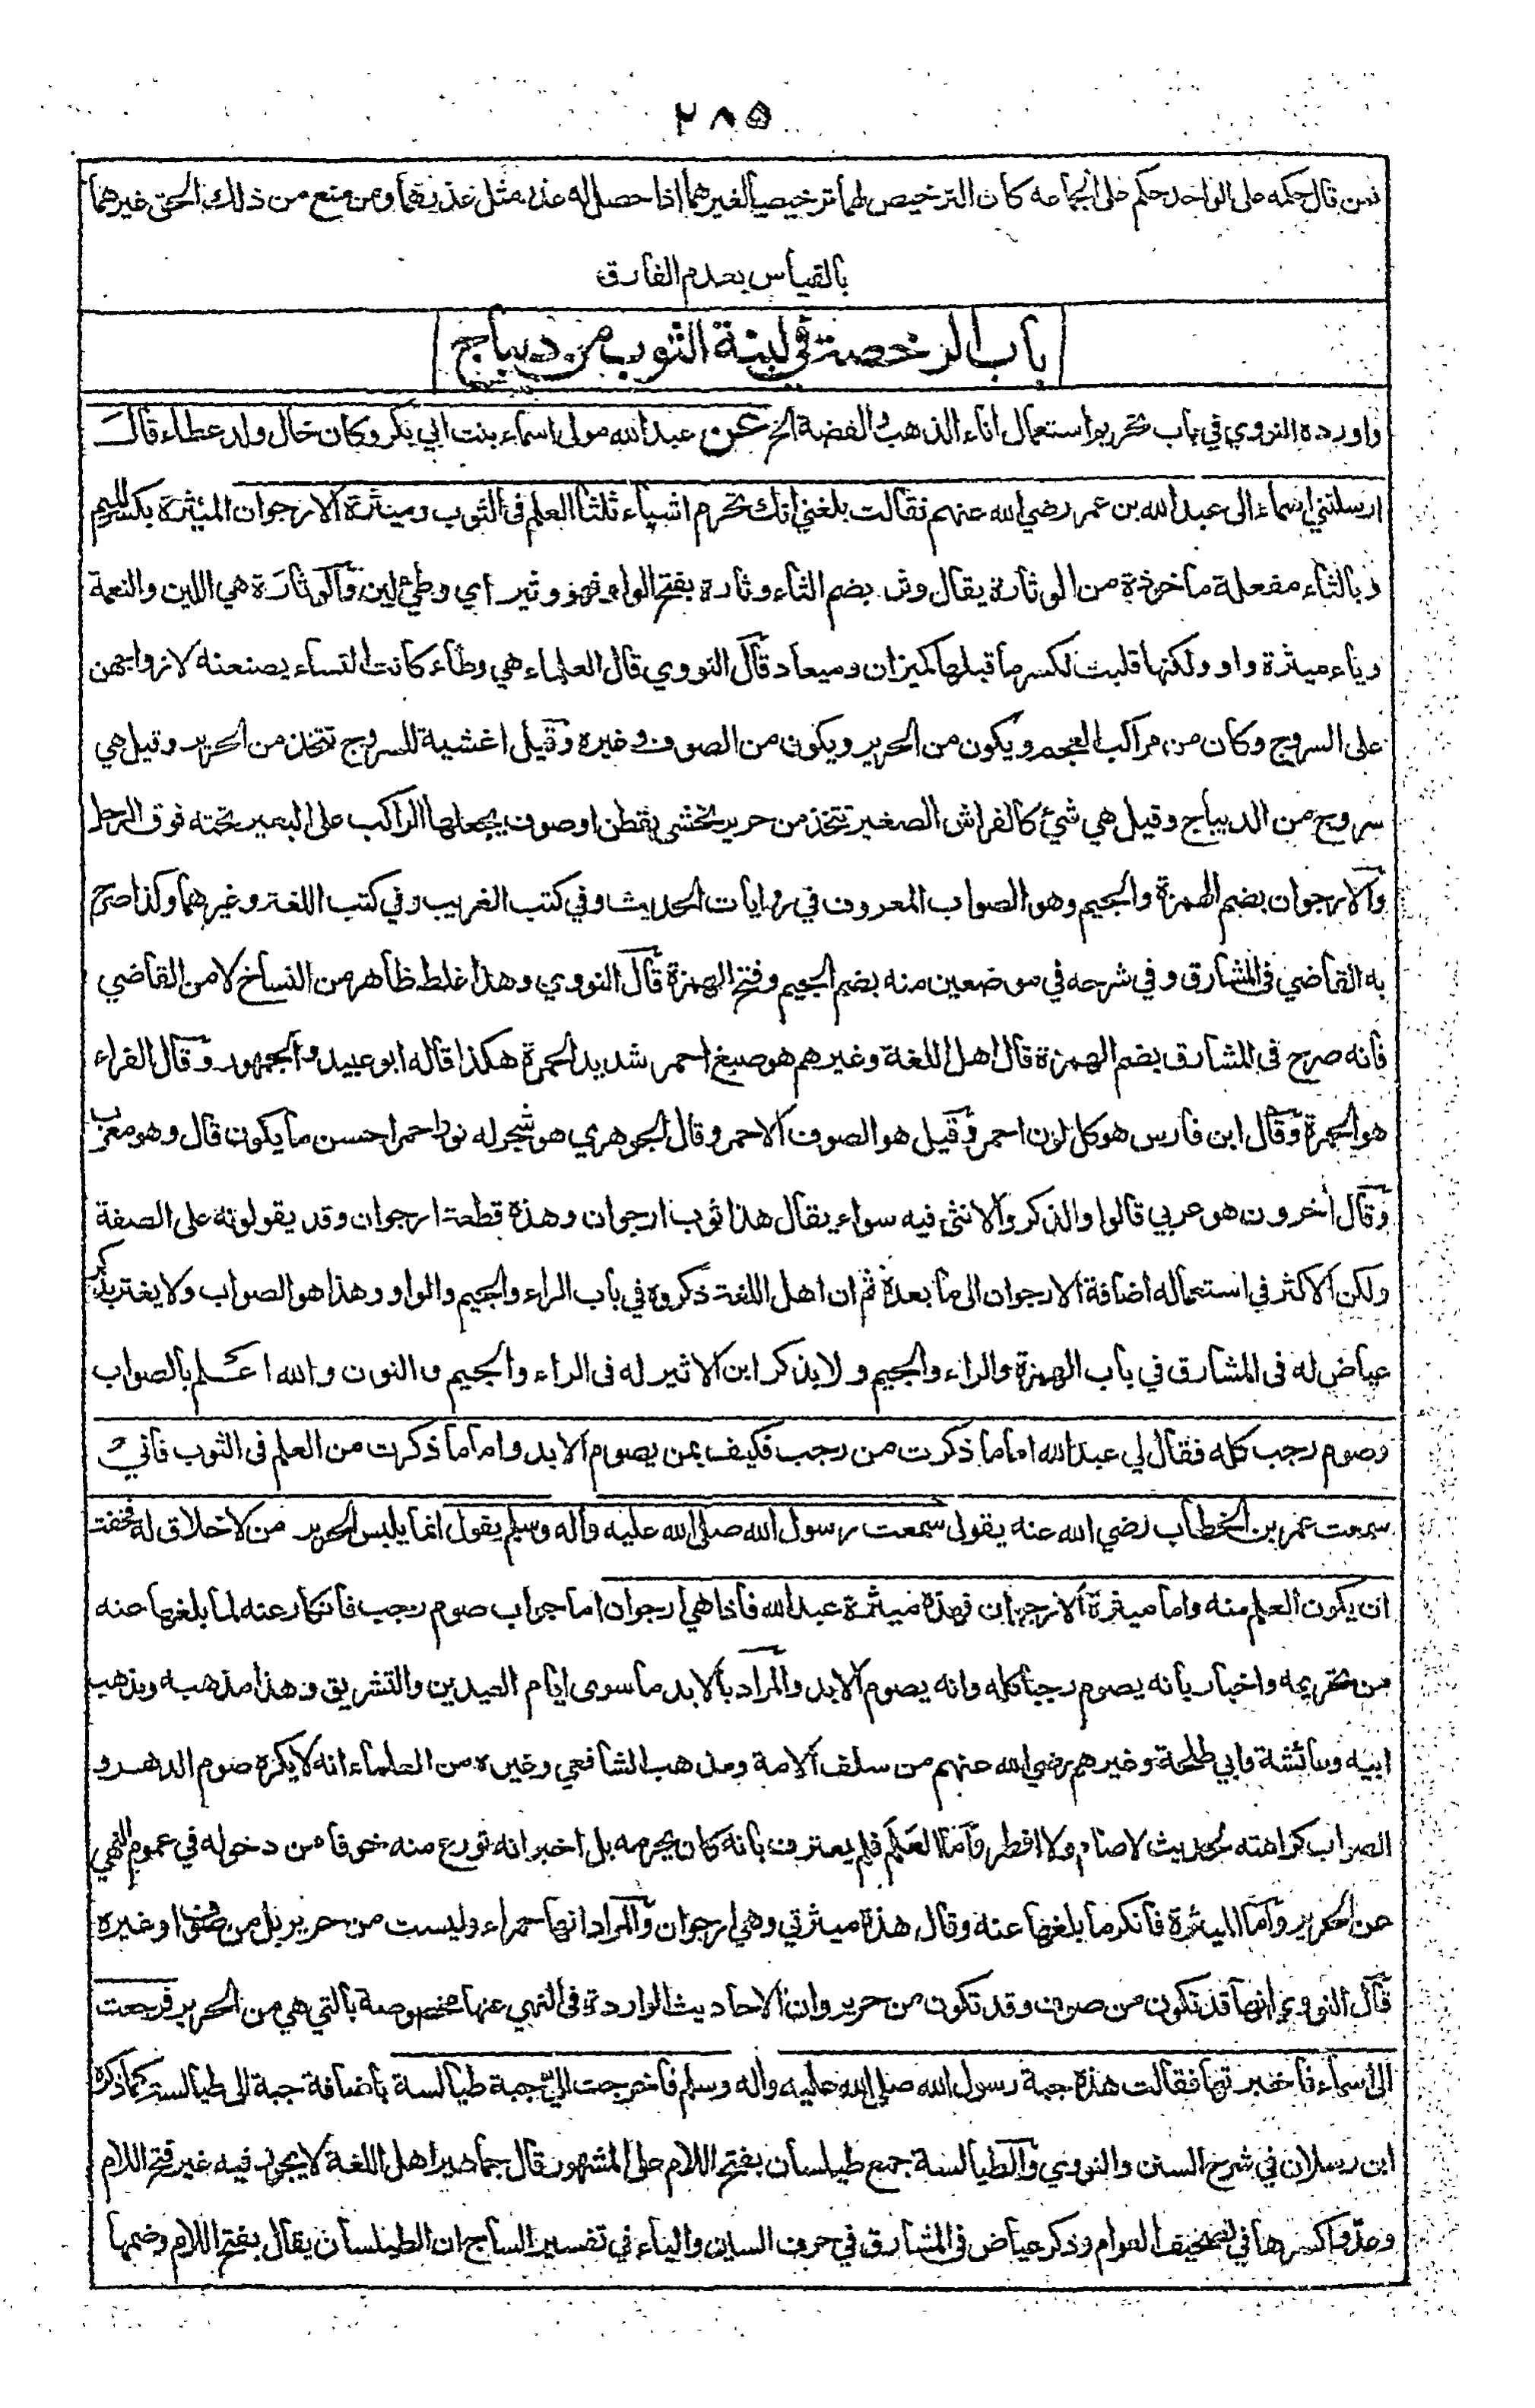 ٢٨٥
فمن قال حكمه على الواحد حكم على الجماعه كان الترخيص لهما ترخيصا لغيرهما اذا حصل له عذر مثل عذرهما ومن منع من ذلك الحق غيرهما
بالقياس بعدم الفارق
باب الرخصة في لبنة الثوب من ديباج
واورده النووي في باب تحريم استعمال اناء الذهب والفضة الخ عن عبد الله مولى اسماء بنت ابي بكر وكان خال ولد عطاء قال
ارسلتني اسماء الى عبد الله بن عمر رضي الله عنهم فقالت بلغني انك تحرم اشياء ثلثا العلم في الثوب وميثرة الارجوان الميثرة بكسر الميم
وبالثاء مفعلة ماخوذة من الوثارة يقال وثر بضم الثاء وثارة بفتح الواو فهو وثير اي وطئ لين والوثارة هي اللين والنعمة
وياء ميثرة واو ولكنها قلبت لكسر ما قبلها كميزان وميعاد قال النووي قال العلماء هي وطاء كانت النساء يصنعنه لازواجهن
على السروج وكان من مراكب العجم ويكون من الحرير ويكون من الصوف وغيره وقيل اغشية للسروج تتخذ من الحرير وقيل هي
سروج من الديباج وقيل هي شئ كالفراش الصغير تتخذ من حرير يحشى بقطن او صوف يجعلها الراكب على البعير تحته فوق الرحل
والارجوان بضم الهمزة والجيم وهو الصواب المعروف في روايات الحديث وفي كتب الغريب وفي كتب اللغة وغيرهما وكذا صرح
به القاضي في المشارق وفي شرحه في موضعين منه بضم الجيم وفتح الهمزة قال النووي وهذا غلط ظاهر من النساخ لا من القاضي
فانه صرح في المشارق بضم الهمزة قال اهل اللغة وغيرهم هو صبغ احمر شديد الحمرة هكذا قاله ابو عبيد والجمهور وقال الفراء
هو الحمرة وقال ابن فارس هو كل لون احمر وقيل هو الصوف الاحمر وقال الجوهري هو شجر له نور احمر احسن ما يكون قال وهو معرب
وقال اخرون هو عربي قالوا والذكر والانثى فيه سواء يقال هذا ثوب ارجوان وهذه قطعة ارجوان وقد يقولونه على الصفة
ولكن الاكثر في استعماله اضافة الارجوان الى ما بعده ثم ان اهل اللغة ذكروه في باب الراء والجيم والواو وهذا هو الصواب ولا يغتر بذكر
عياض له في المشارق في باب الهمزة والراء والجيم ولا بذكر ابن الاثير له في الراء والجيم والنون والله اعلم بالصواب
وصوم رجب كله فقال لي عبد الله اما ما ذكرت من رجب فكيف بمن يصوم الابد واما ما ذكرت من العلم في الثوب فاني
سمعت عمر بن الخطاب رضي الله عنه يقول سمعت رسول الله صلى الله عليه وآله وسلم يقول انما يلبس الحرير من لا خلاق له فخفت
ان يكون العلم منه واما ميثرة الارجوان فهذه ميثرة عبد الله فاذا هي ارجوان اما جواب صوم رجب فانكار عنه لما بلغها عنه
من تحريمه واخبار بانه يصوم رجبا كله وانه يصوم الابد والمراد بالابد ما سوى ايام العيدين والتشريق وهذا مذهبه ومذهب
ابيه وعائشة وابي طلحة وغيرهم رضي الله عنهم من سلف الامة ومذهب الشافعي وغيره من العلماء انه لا يكره صوم الدهر و
الصواب كراهته لحديث لا صام ولا افطر واما العلم فلم يعترف بانه كان يحرمه بل اخبر انه تورع منه خوفا من دخوله في عموم النهي
عن الحرير واما الميثرة فانكر ما بلغها عنه وقال هذه ميثرتي وهي ارجوان والمراد انها حمراء وليست من حرير بل من صوف او غيره
قال النووي انها قد تكون من صوف وقد تكون من حرير وان الاحاديث الواردة في النهي عنها مخصوصة بالتي هي من الحرير فرجعت
الى اسماء فاخبرتها فقالت هذه جبة رسول الله صلى الله عليه وآله وسلم فاخرجت الي جبة طيالسة باضافة جبة الى طيالسة كما ذكره
ابن رسلان في شرح السنن والنووي والطيالسة جمع طيلسان بفتح اللام على المشهور قال جماهير اهل اللغة لا يجوز فيه غير فتح اللام
وعدوا كسرها في تصحيف العوام وذكر عياض في المشارق في حرف السين والياء في تفسير الساج ان الطيلسان يقال بفتح اللام وضمها